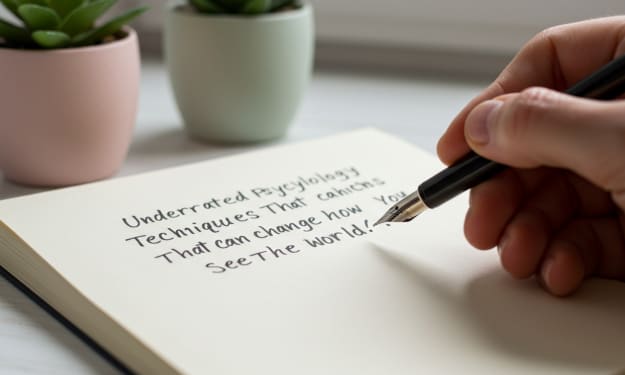 Underrated Psycylology
Techniques That cahicns
That can change how You
See The world!